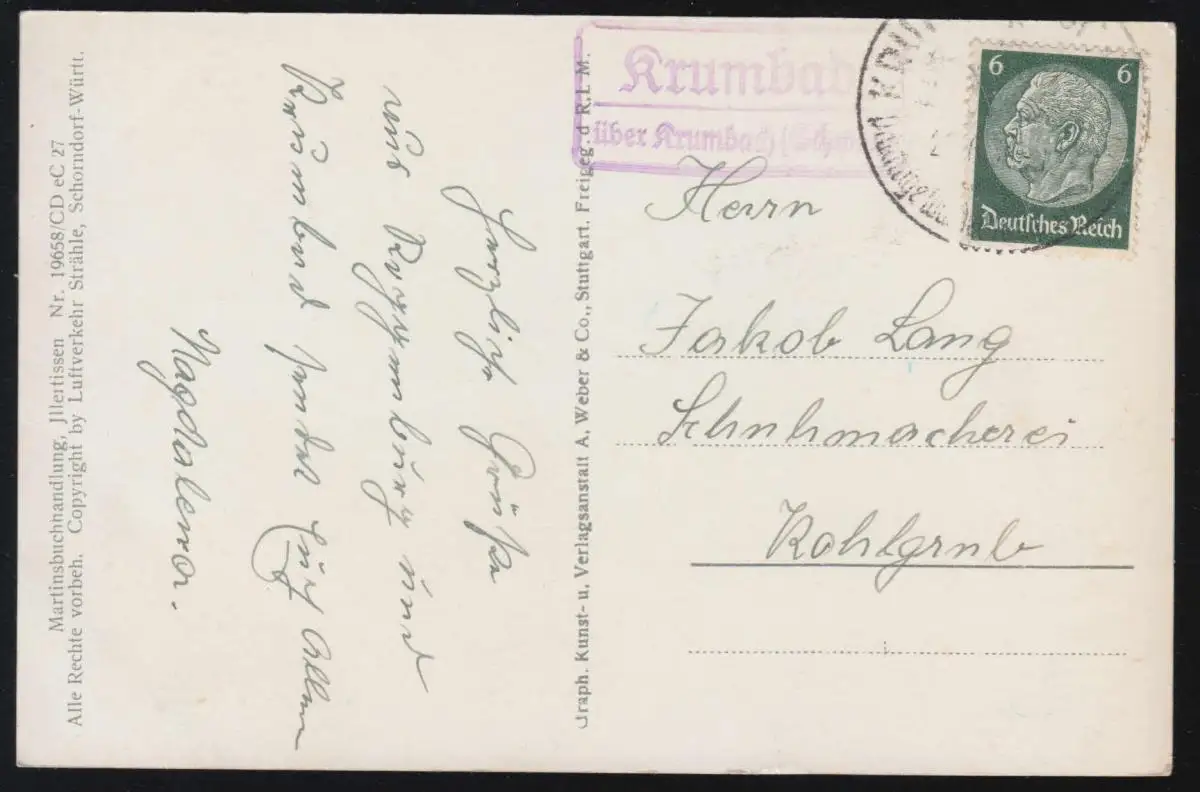 Martinsbuchhandlung, Jllertissen Nr. 19658/CD eC 27
Alle Rechte vorbeh. Copyright by Luftverkehr Strähle, Schorndorf-Württ.
Herzliche Grüße
aus Roggenburg und
sendet Euch Allen
Magdalena.
Graph. Kunst- u. Verlagsanstalt A. Weber & Co., Stuttgart. Freigeg. d R.L.M.
Krumbad
über Krumbach (Schw
6 6
Deutsches Reich
Herrn
Jakob Lang
Schuhmacherei
Kohlgrub